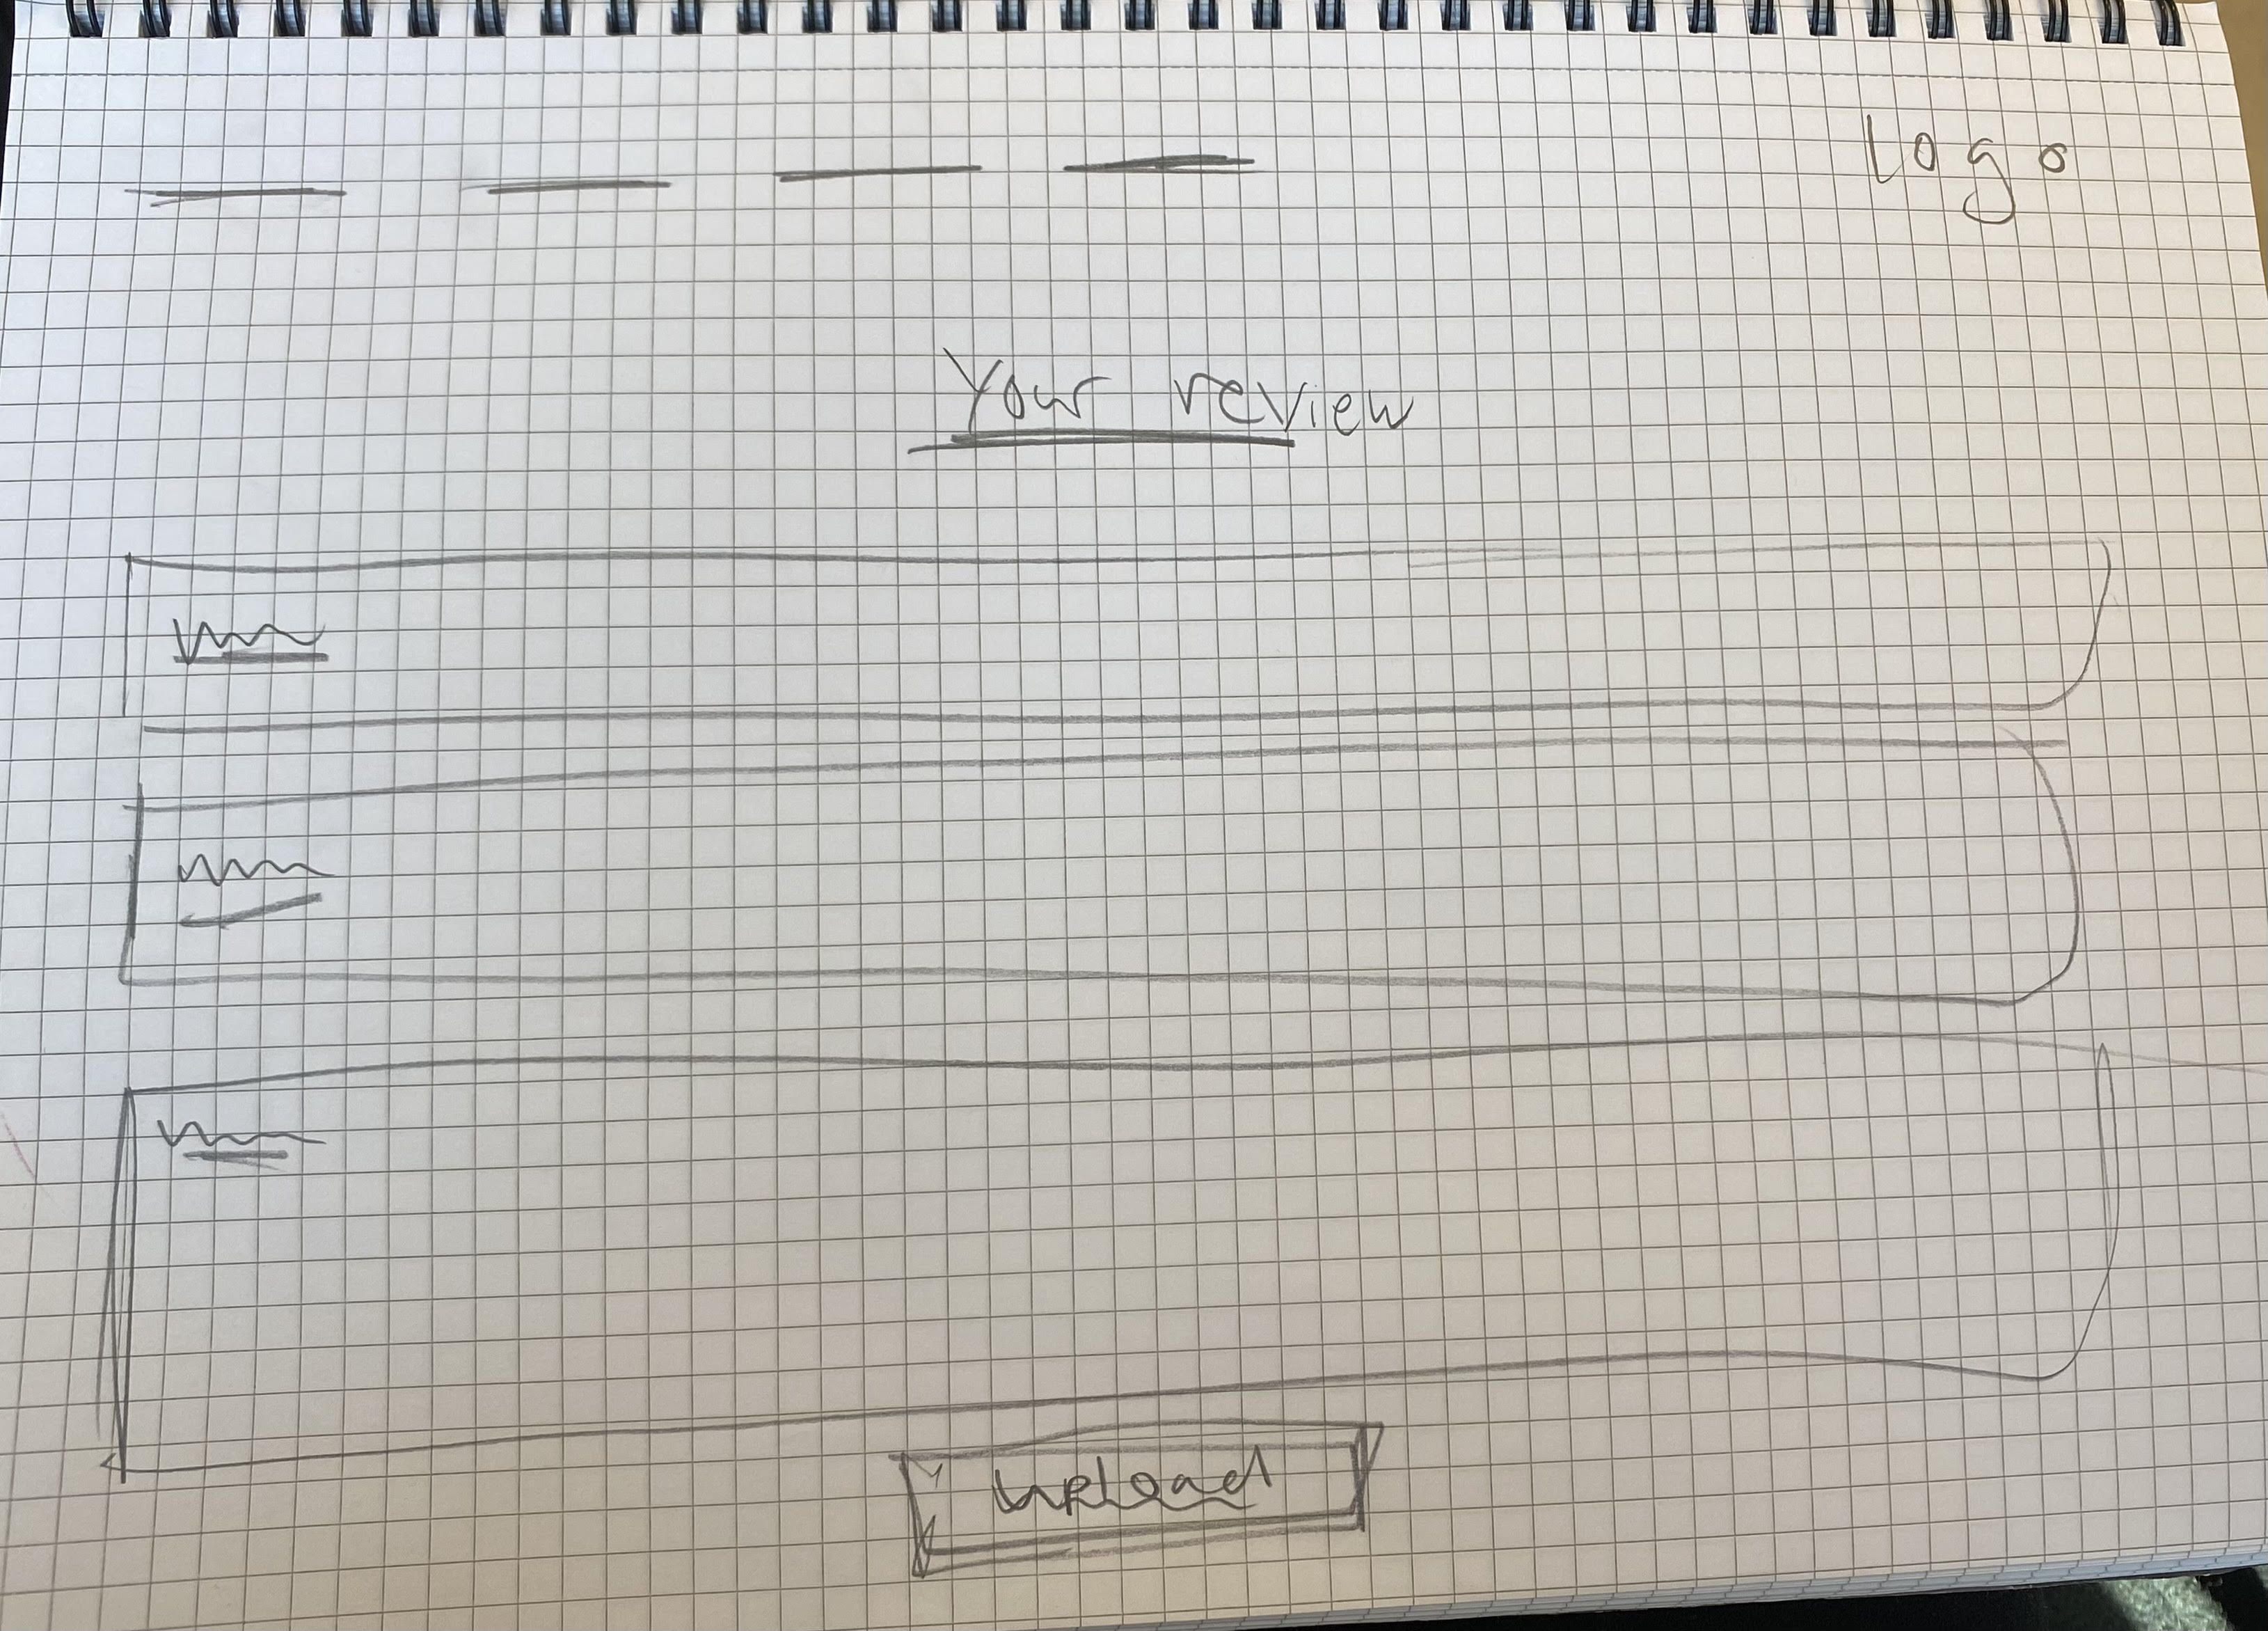 logo
Your review
upload